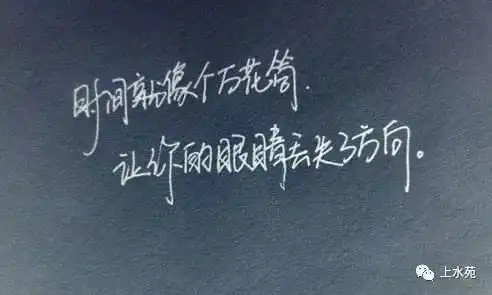 时间就像个万花筒.
让你的眼睛丢失了方向。
上水苑